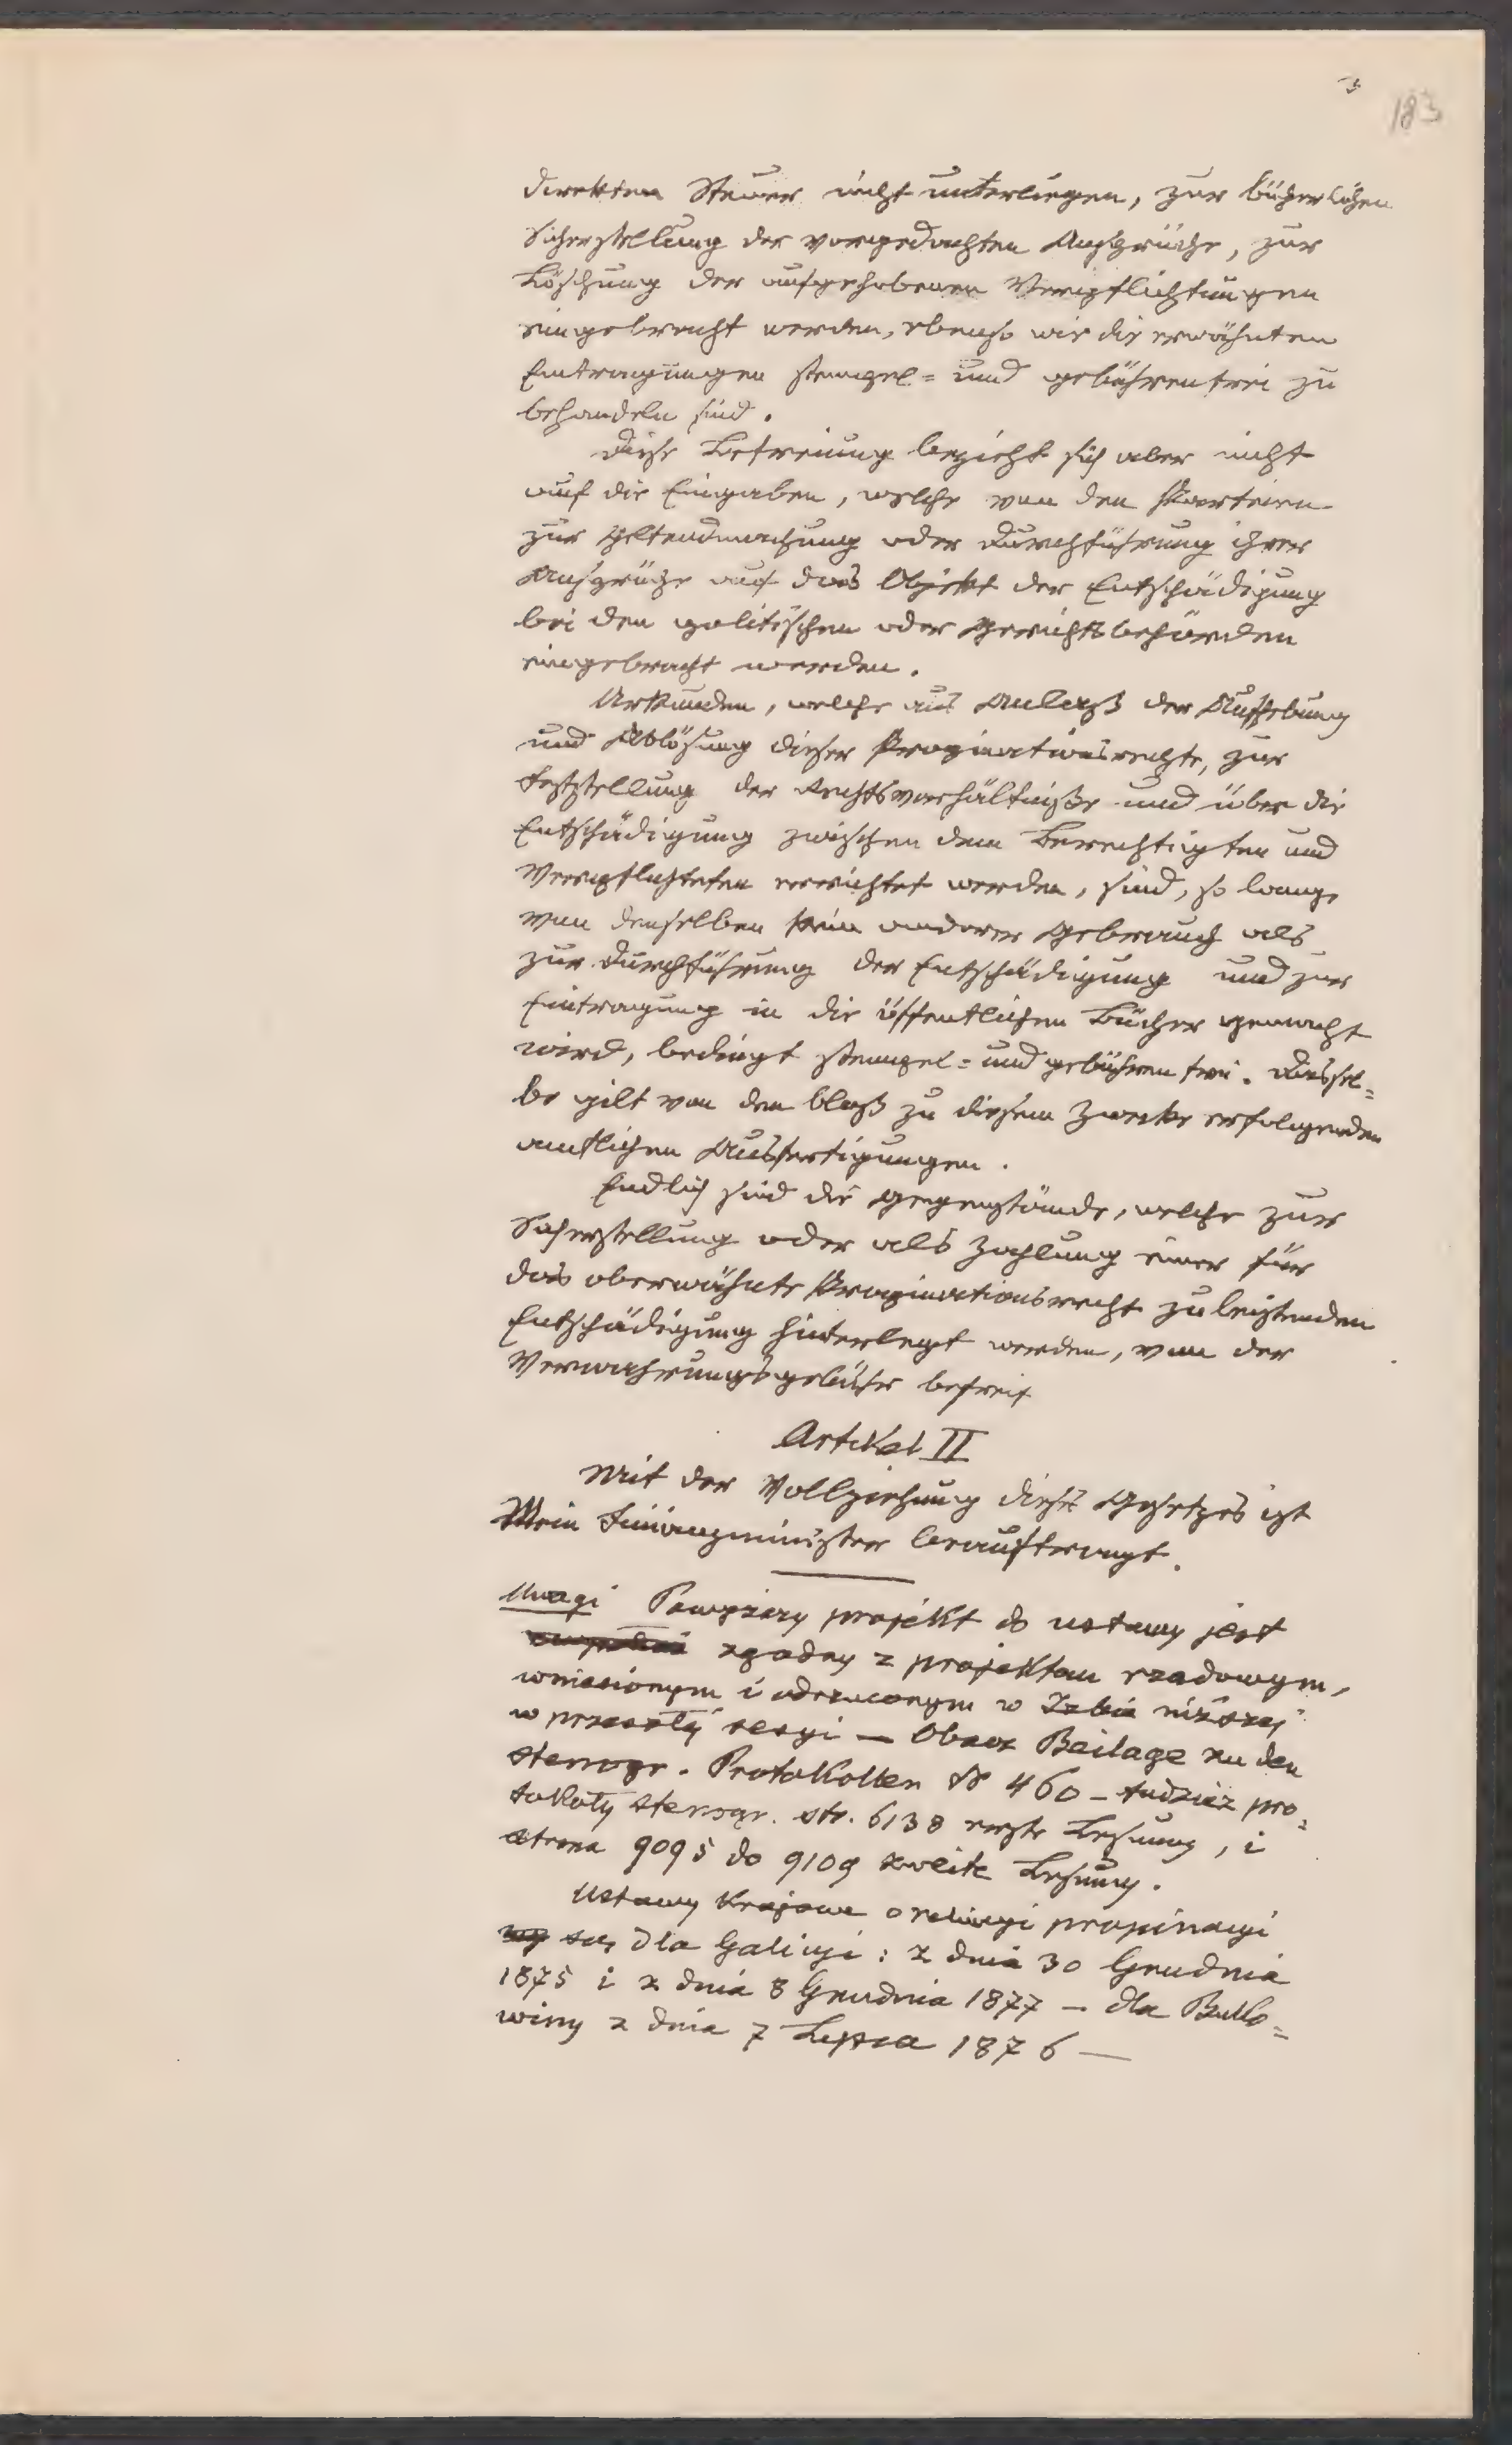 3
183
direkten Steuer nicht unterliegen, zur bücherlichen
Sicherstellung der vorgedachten Ansprüche, zur
Löschung der aufgehobenen Verpflichtungen
eingebracht werden, ebenso wie die erwähnten
Eintragungen stempel= und gebührenfrei zu
behandeln sind.
Diese Befreiung bezieht sich aber nicht
auf die Eingaben, welche von den Parteien
zur Geltendmachung oder Durchführung ihrer
Ansprüche auf das Objekt der Entschädigung
bei den politischen oder Gerichtsbehörden
eingebracht werden.
Urkunden, welche aus Anlaß der Aufhebung
und Ablösung dieser Propinationsrechte, zur
Feststellung der Rechtsverhältniße und über die
Entschädigung zwischen dem Berechtigten und
Verpflichteten errichtet werden, sind, so lange
von denselben kein anderer Gebrauch als
zur Durchführung der Entschädigung und zur
Eintragung in die öffentlichen Bücher gemacht
wird, bedingt stempel= und gebührenfrei. Dassel=
be gilt von den bloß zu diesem Zwecke erfolgenden
amtlichen Ausfertigungen.
Endlich sind die Gegenstände, welche zur
Sicherstellung oder als Zahlung einer für
das oberwähnte Propinationsrecht zu leistenden
Entschädigung hinterlegt werden, von der
Verwahrungsgebühr befreit
Artikel II
Mit der Vollziehung dieses Gesetzes ist
Mein Finanzminister beauftragt.
Uwagi Powyższy projekt do ustawy jest
zgodny z projektem rządowym,
wniesionym i odrzuconym w Izbie niższej
w przeszłéj sesyi — Obacz Beilage zu den
stenogr. Protokollen № 460 – tudzież pro=
tokoły stenogr. str. 6138 erste Lesung, i
strona 9095 do 9109 zweite Lesung.
Ustawy krajowe o propinacyi
są dla Galicyi: z dnia 30 Grudnia
1875 i z dnia 8 Grudnia 1877 – dla Buko=
winy z dnia 7 Lipca 1876 —